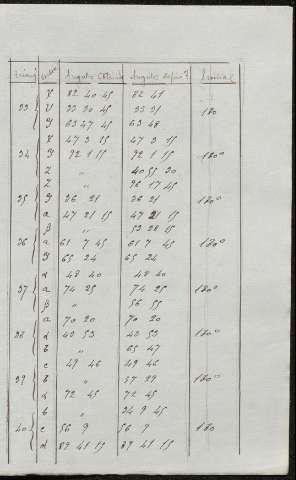 Angulos Angulos
X 82 40 45 82 41
33 V 33 30 45 33 31 180
Y 63 47 45 63 48
X 47 3 15 47 3 15
34 Y 92 1 15 92 1 15 180°
Z " 40 55 30
Z " 96 17 45
35 Y 36 21 36 21 180°
a 47 21 15 47 21 15
β " 53 28 15
36 a 61 7 45 61 7 45 180°
Y 65 24 65 24
d 48 40 48 40
37 a 74 25 74 25 180°
β " 56 55
a 70 20 70 20
38 d 43 53 43 53 180°
b " 65 47
c 49 46 49 46
39 b " 57 29 180°
d 72 45 72 45
b " 34 9 45
40 c 56 9 56 9 180
d 89 41 15 89 41 15